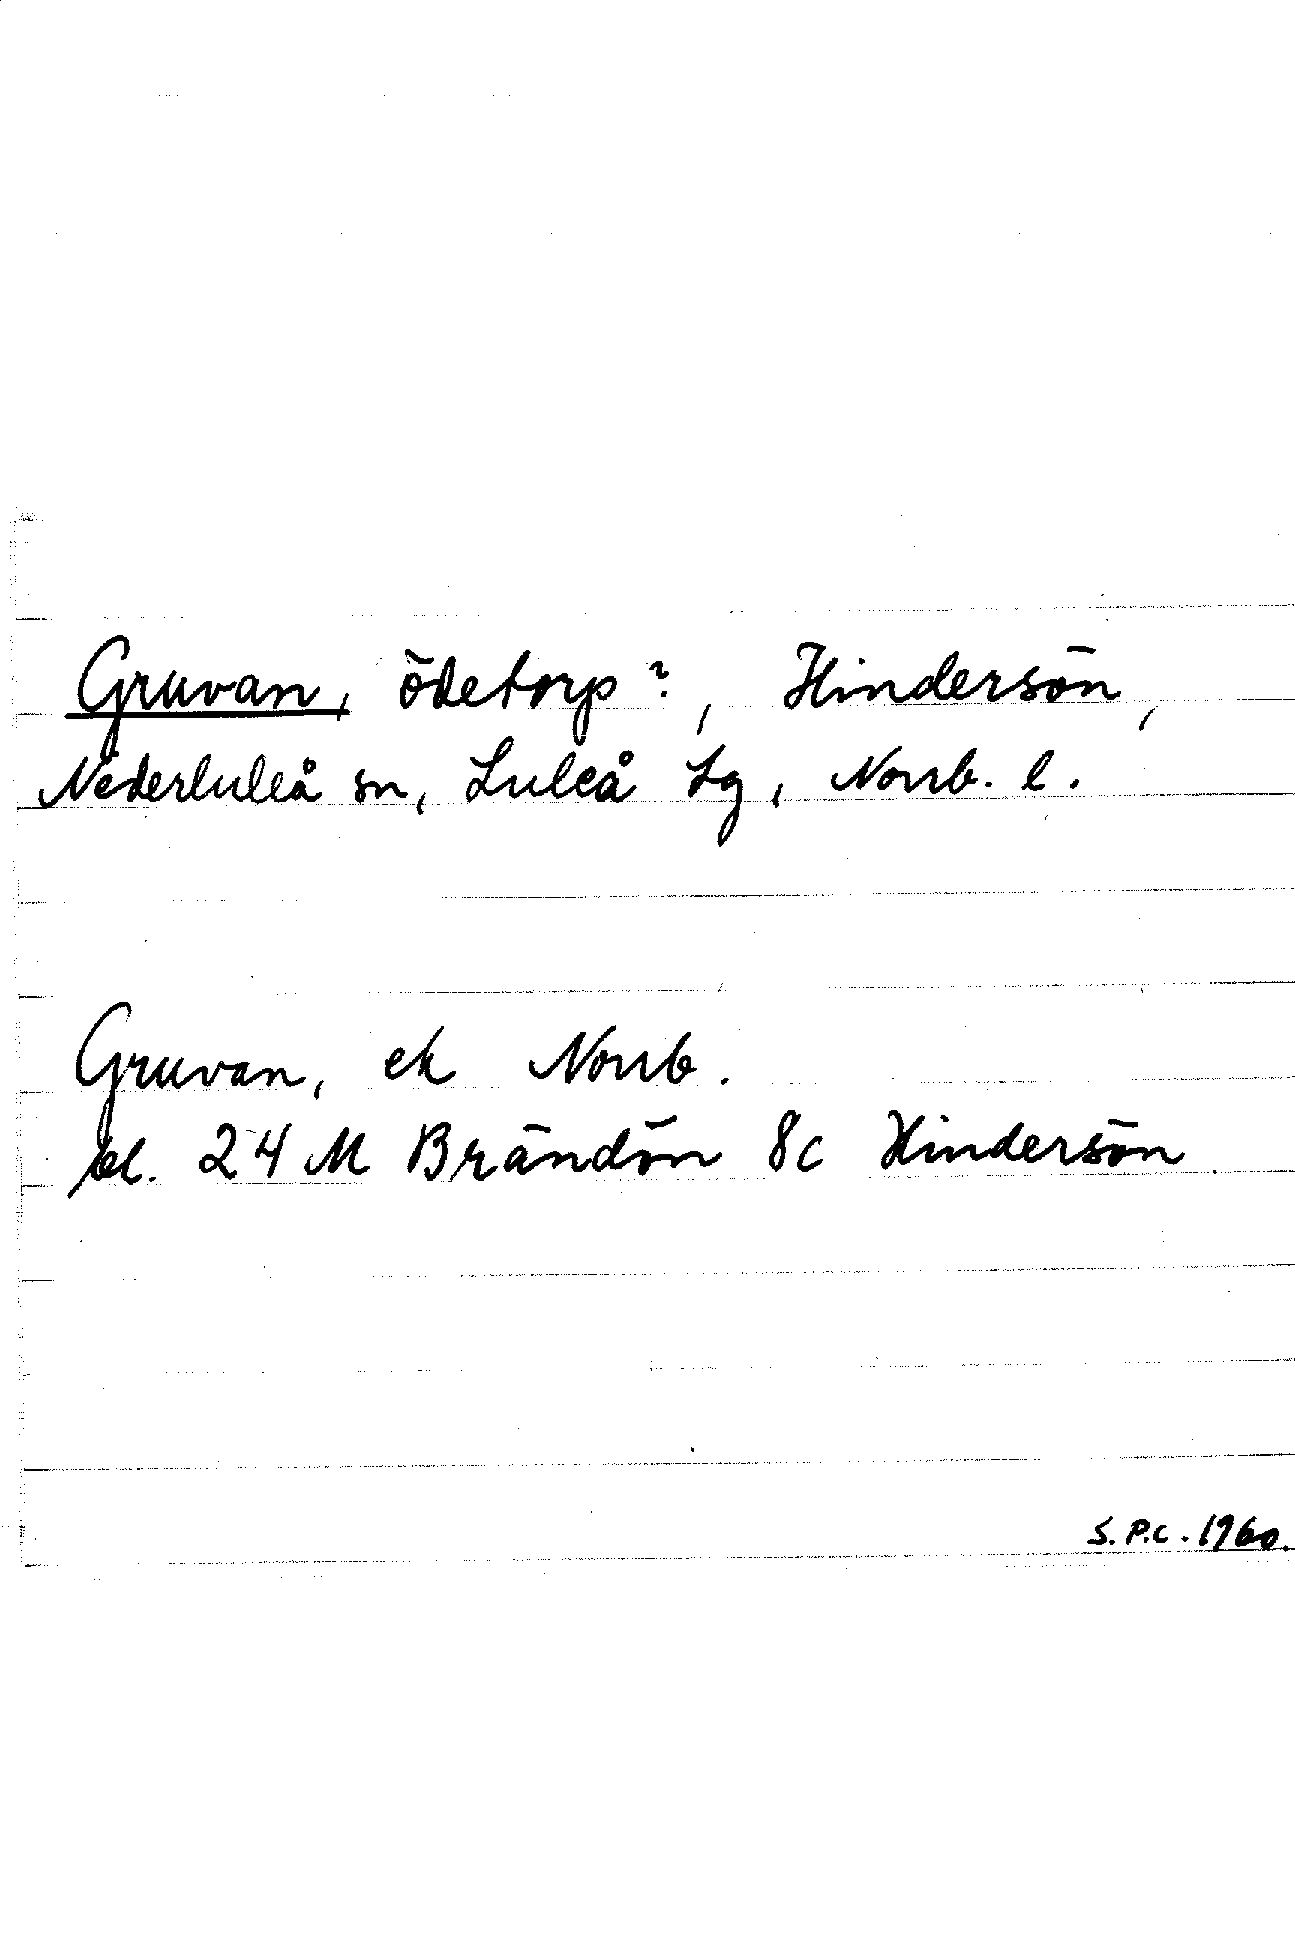 Gruvan, ödetorp?, Hindersön,
Nederluleå sn, Luleå lg, Norrb. l.
Gruvan, ek Norrb.
bl. 24 M Brändön 8c Hindersön
S.P.C. 1960.